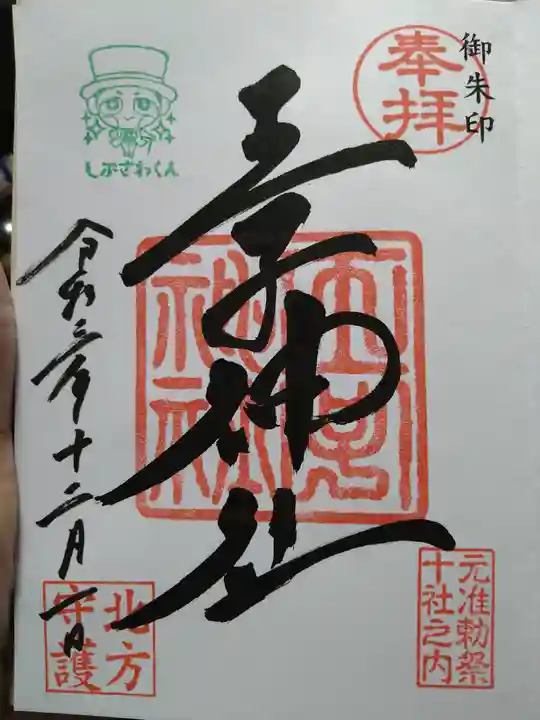 御朱印
奉拝
元准勅祭
十社之内
王子神社
王子
神社
しぶさわくん
令和三年十二月一日
北方
守護